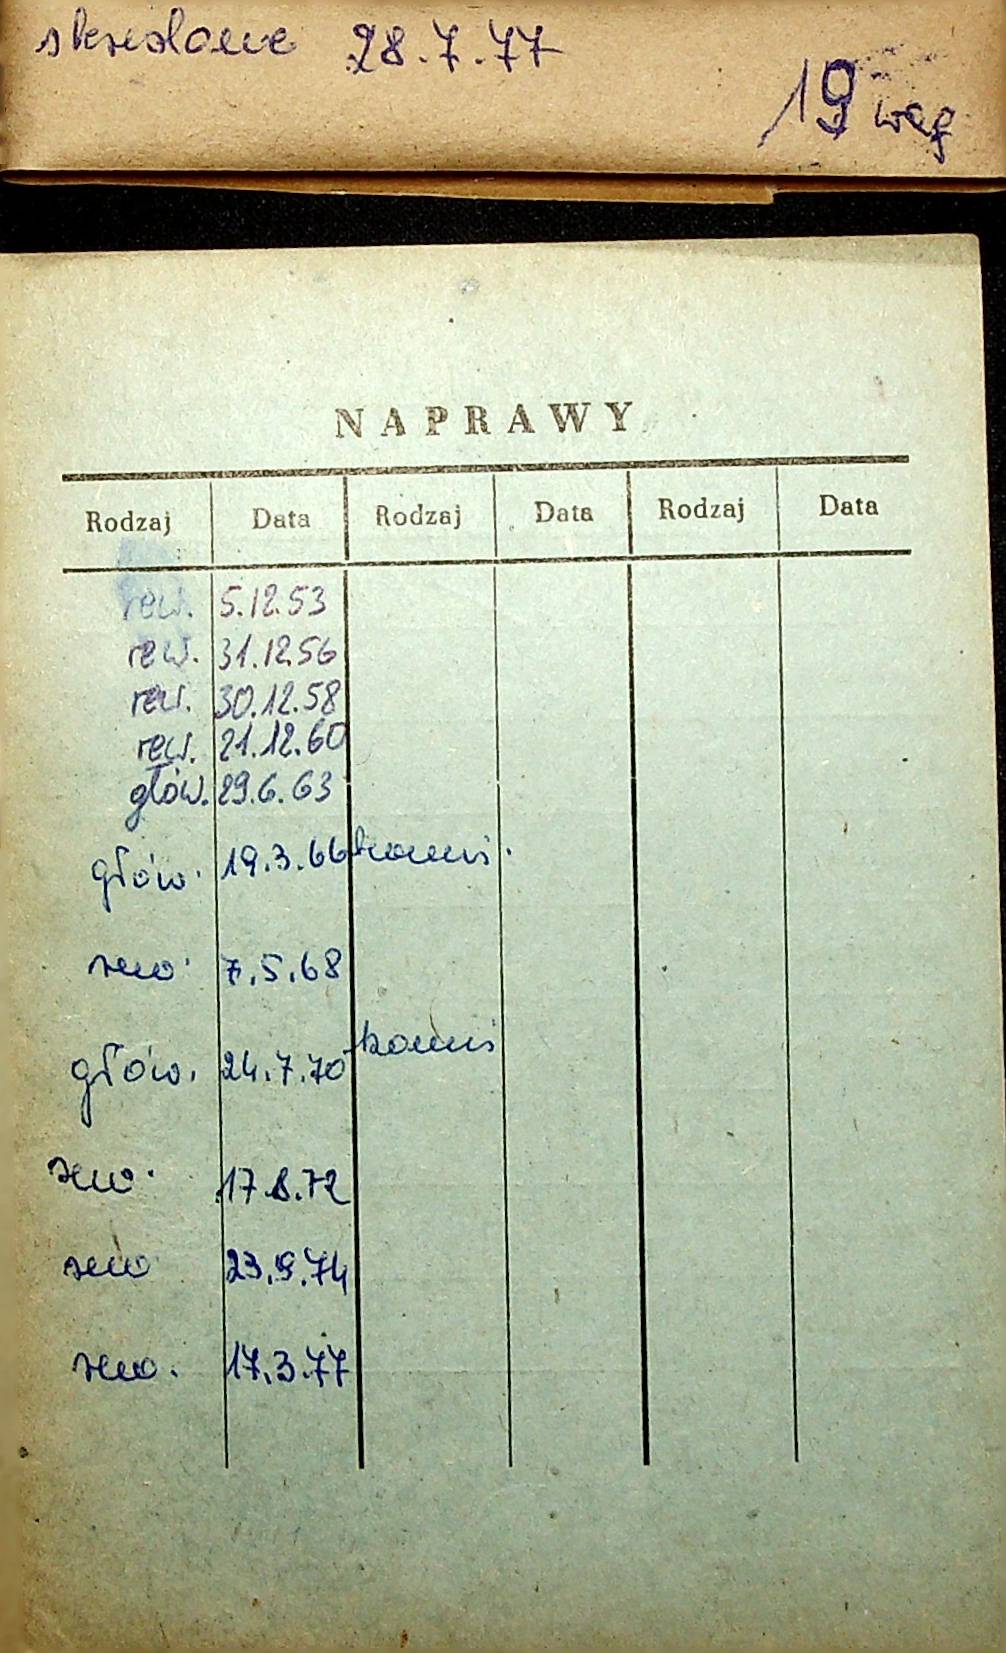 skreślone 28.7.77
19 wag
NAPRAWY
Rodzaj Data Rodzaj Data Rodzaj Data
rew. 5.12.53
rew. 31.12.56
rew. 30.12.58
rew. 21.12.60
głów. 29.6.63
głów. 19.3.66
rew. 7.5.68
głów. 24.7.70
rew. 17.8.72
rew 23.9.74
rew. 17.3.77